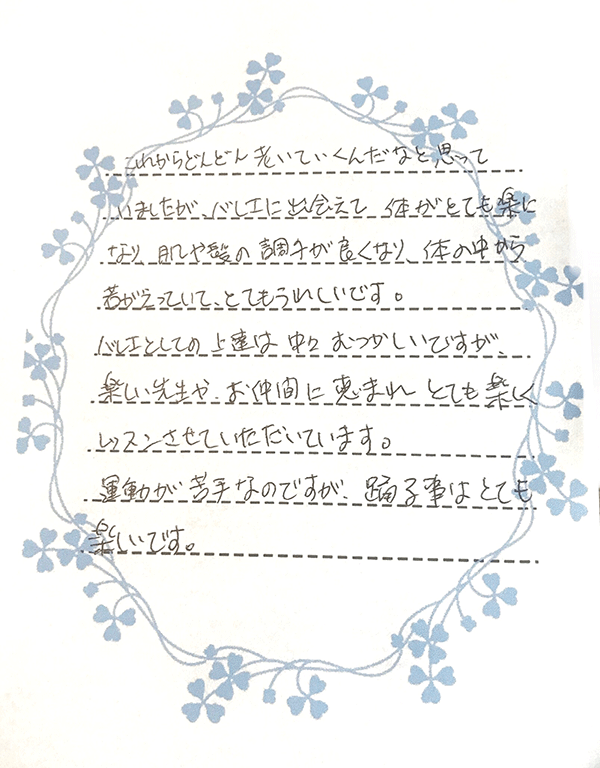 これからどんどん老いていくんだなと思って
いましたが、バレエに出会えて、体がとても楽に
なり、肌や髪の調子が良くなり、体の中から
若がえっていて、とてもうれしいです。
バレエとしての上達は中々むつかしいですが、
楽しい先生や、お仲間に恵まれとても楽しく
レッスンさせていただいています。
運動が苦手なのですが、踊る事はとても
楽しいです。